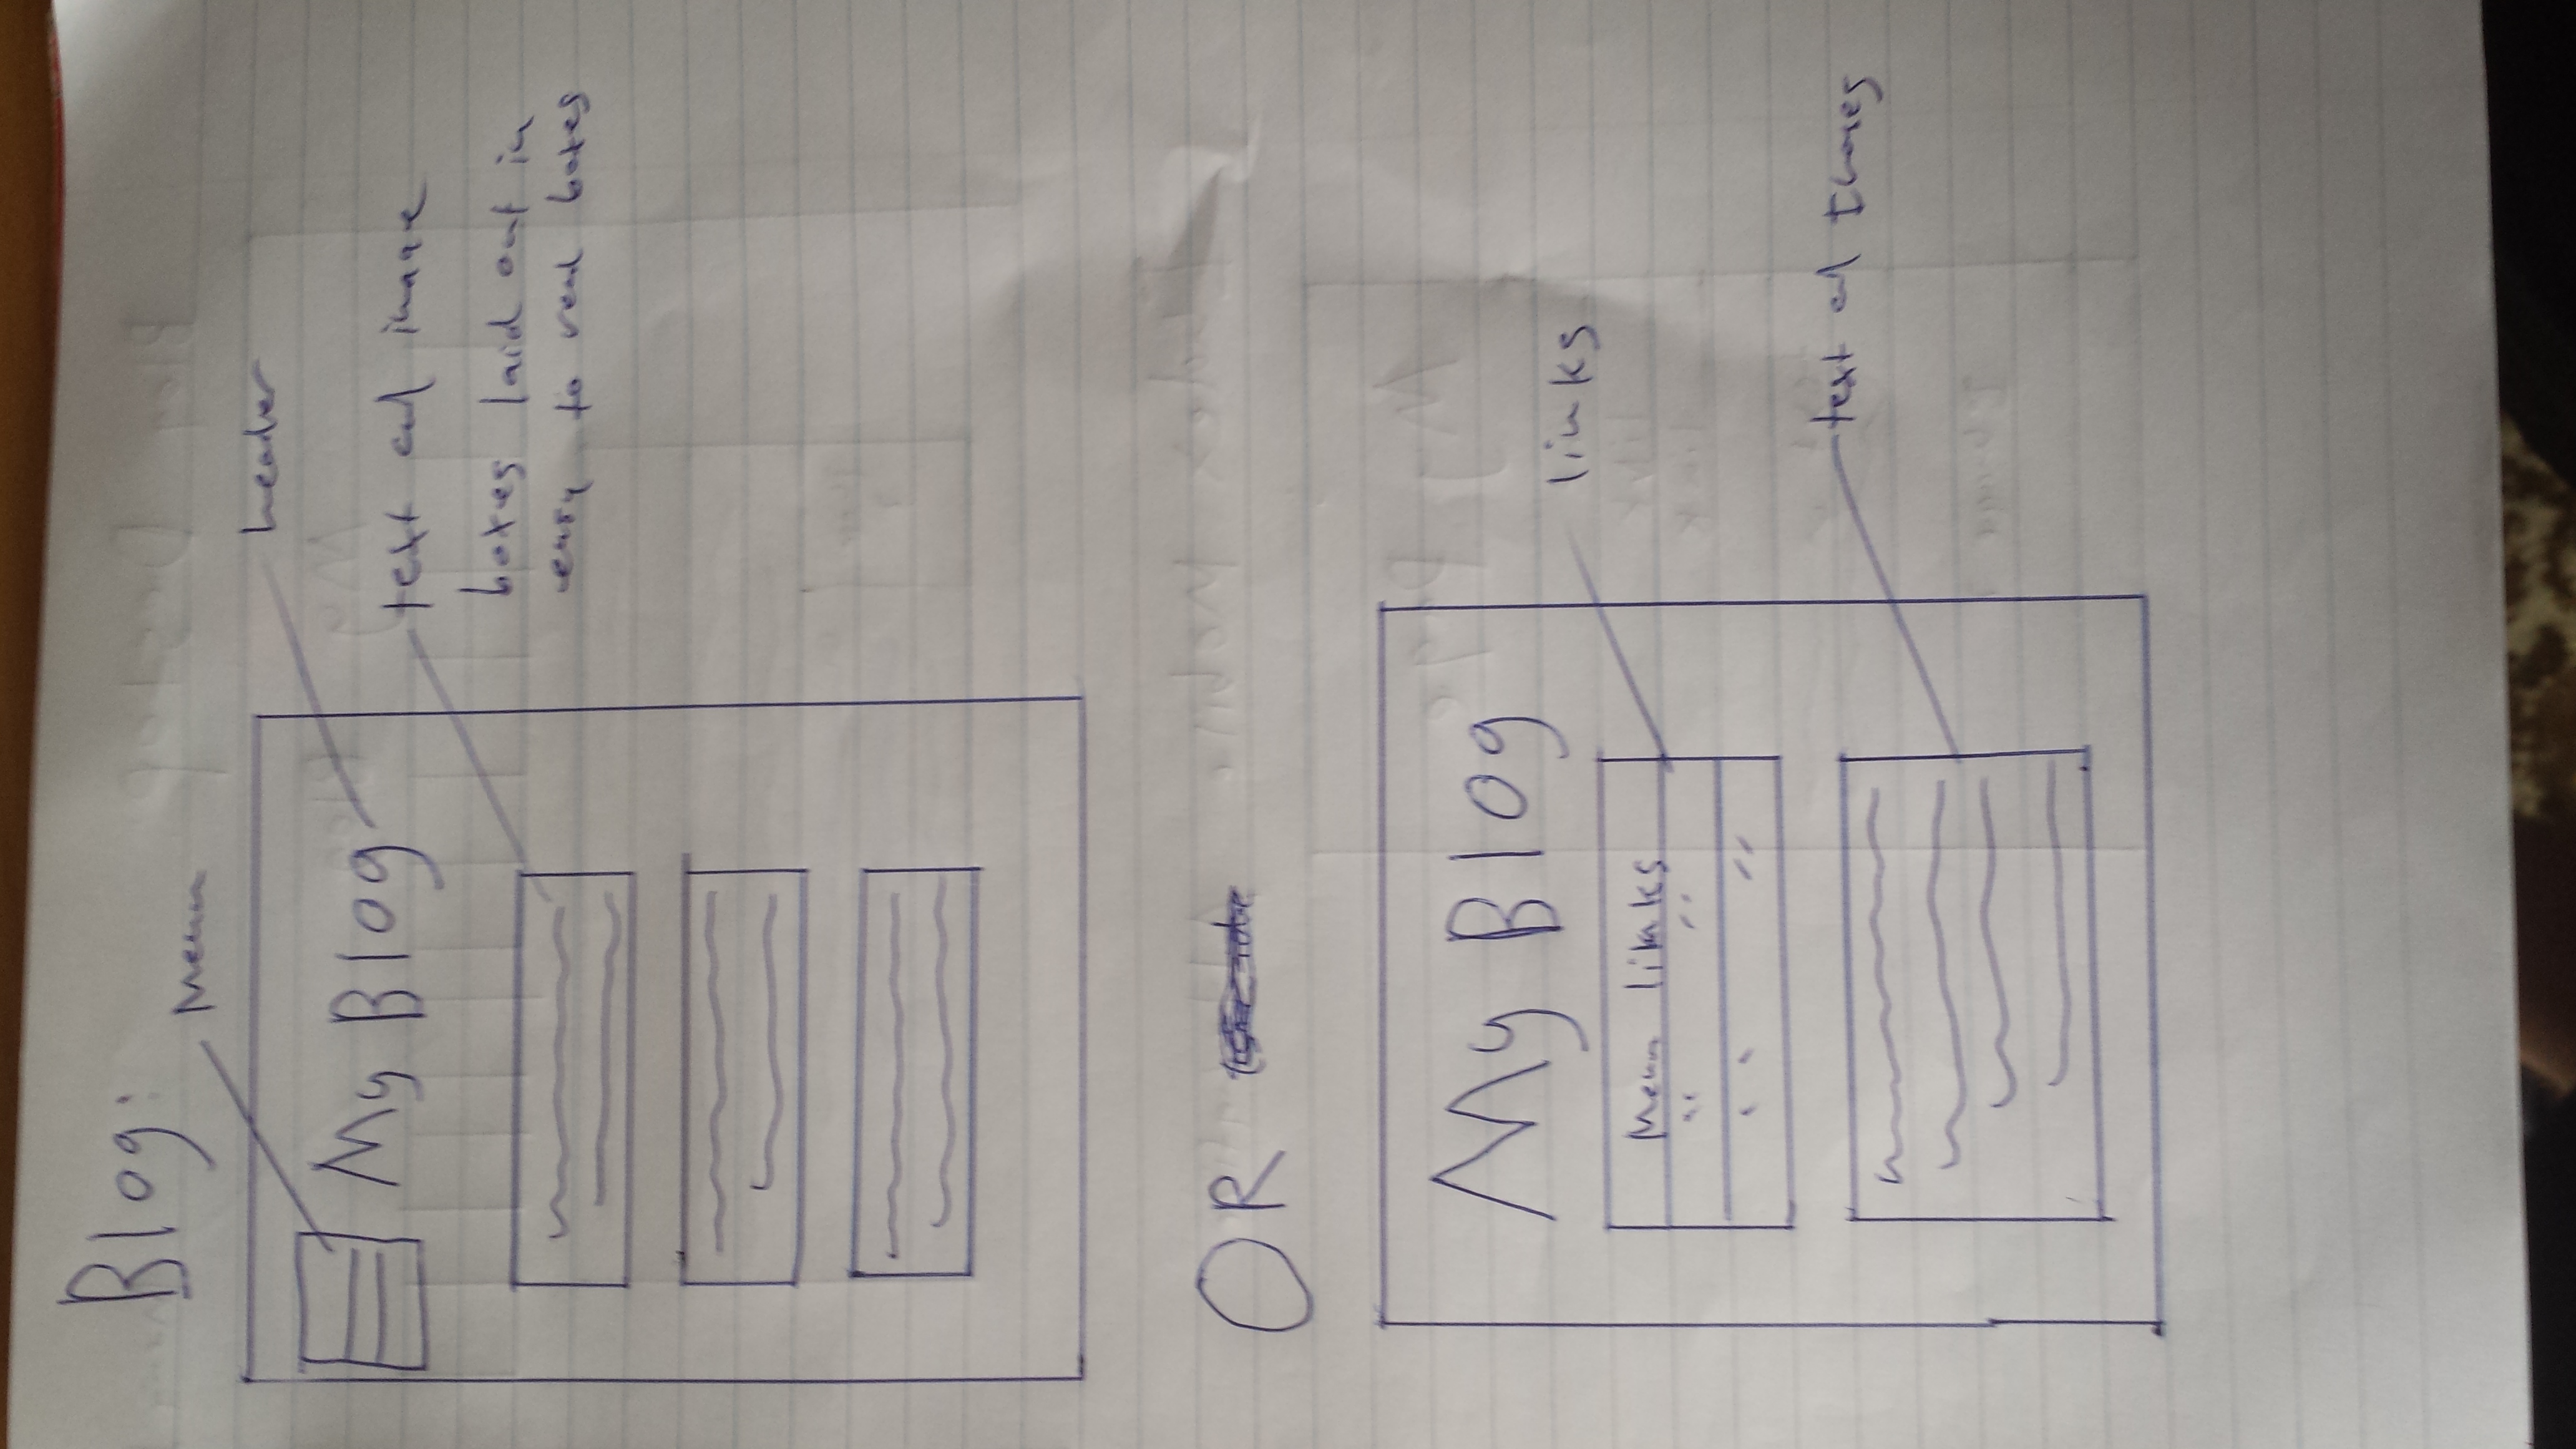 Blog:
Menu
header
My Blog
text and image
boxes laid out in
easy to read boxes
OR
My Blog
links
Menu links
text at times